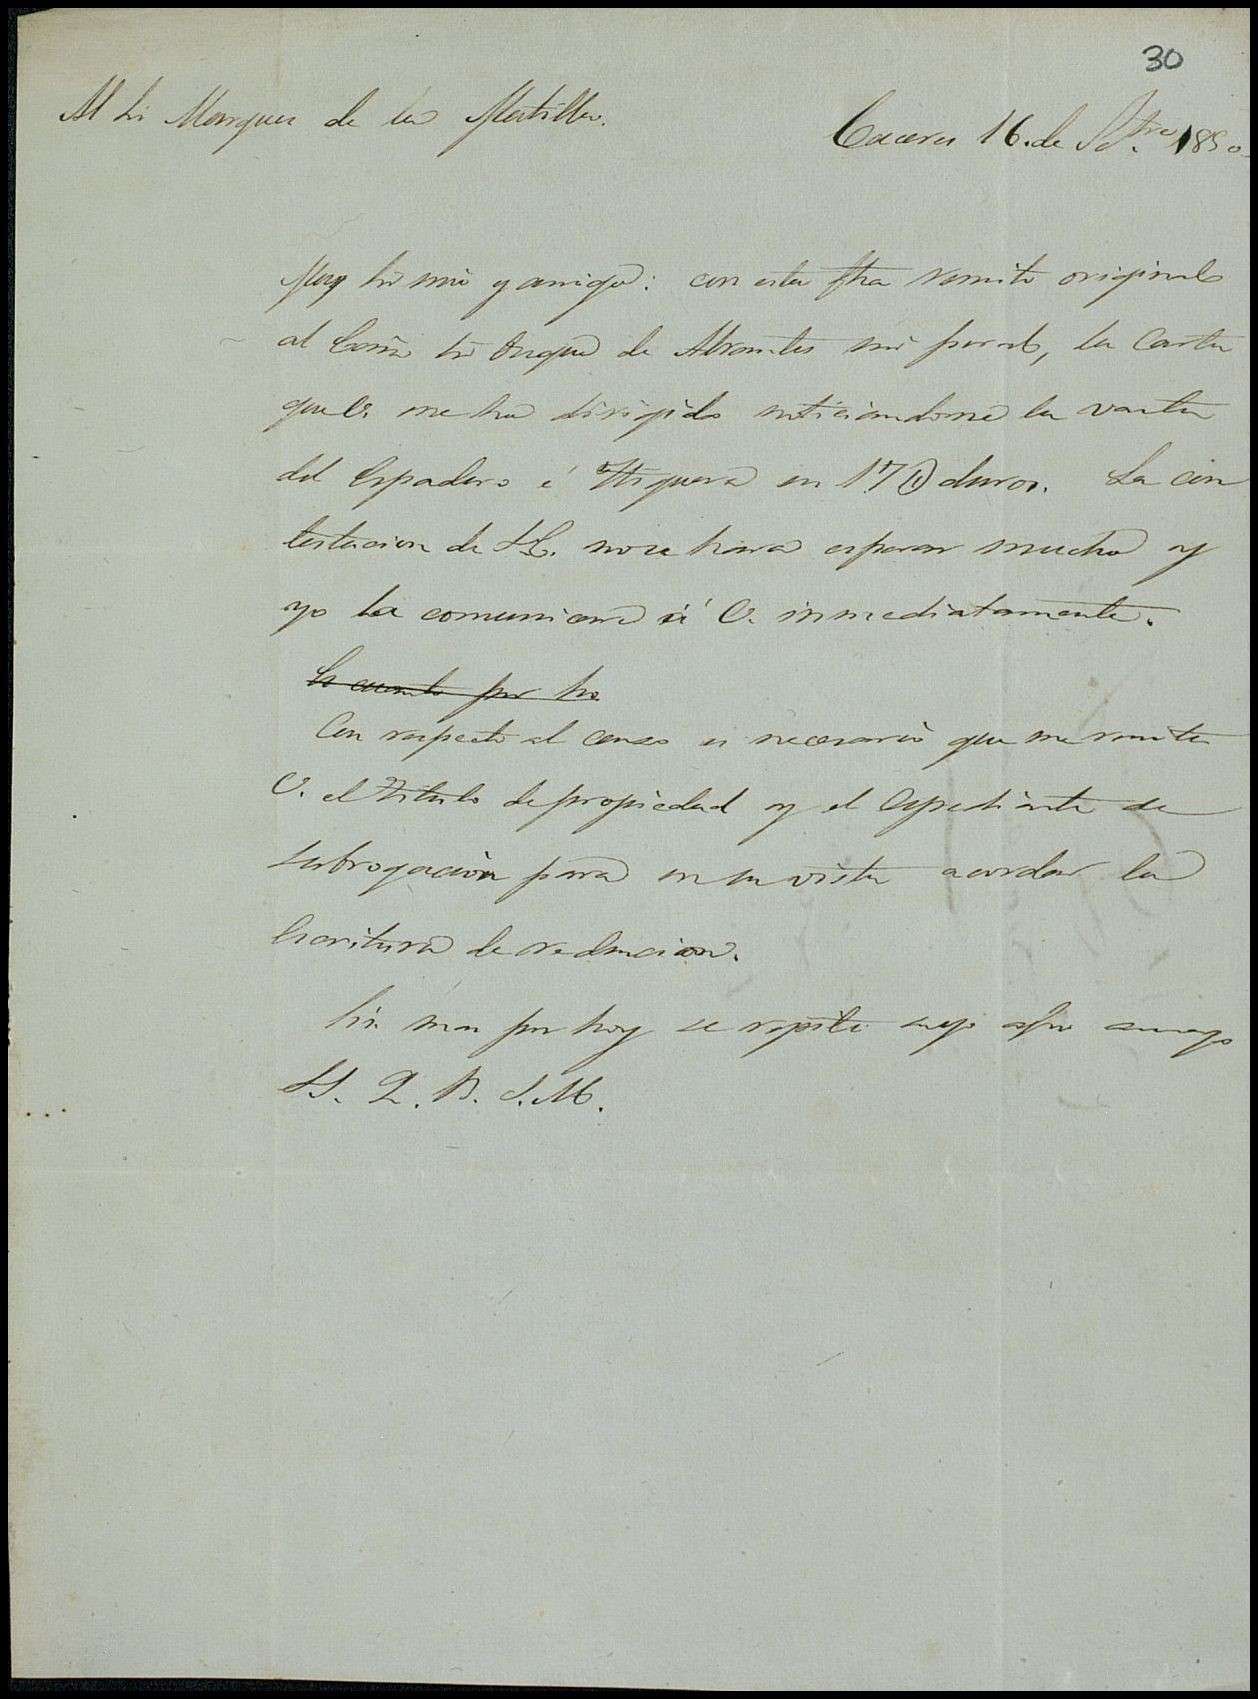 30
Al Sr Marques de la Matilla.
Caceres 16. de Stre 1850
Muy Sr mio y amigo: con esta fha remito original
al Exmo Sr Duque de Abrantes mi pral, la Carta
que V. me ha dirigido noticiandome la venta
del Espadero é Higuera en 17 duros. La con
testacion de SE. no se hará esperar mucho y
yo la comunicaré á V. inmediatamente.
En cuanto por ho
Con respecto al censo es necesario que me remita
V. el titulo de propiedad y el Espediente de
subrogacion para en su vista acordar la
Escritura de reduccion.
Sin mas por hoy se repite suyo afmo amigo
SS. Q. B. S. M.